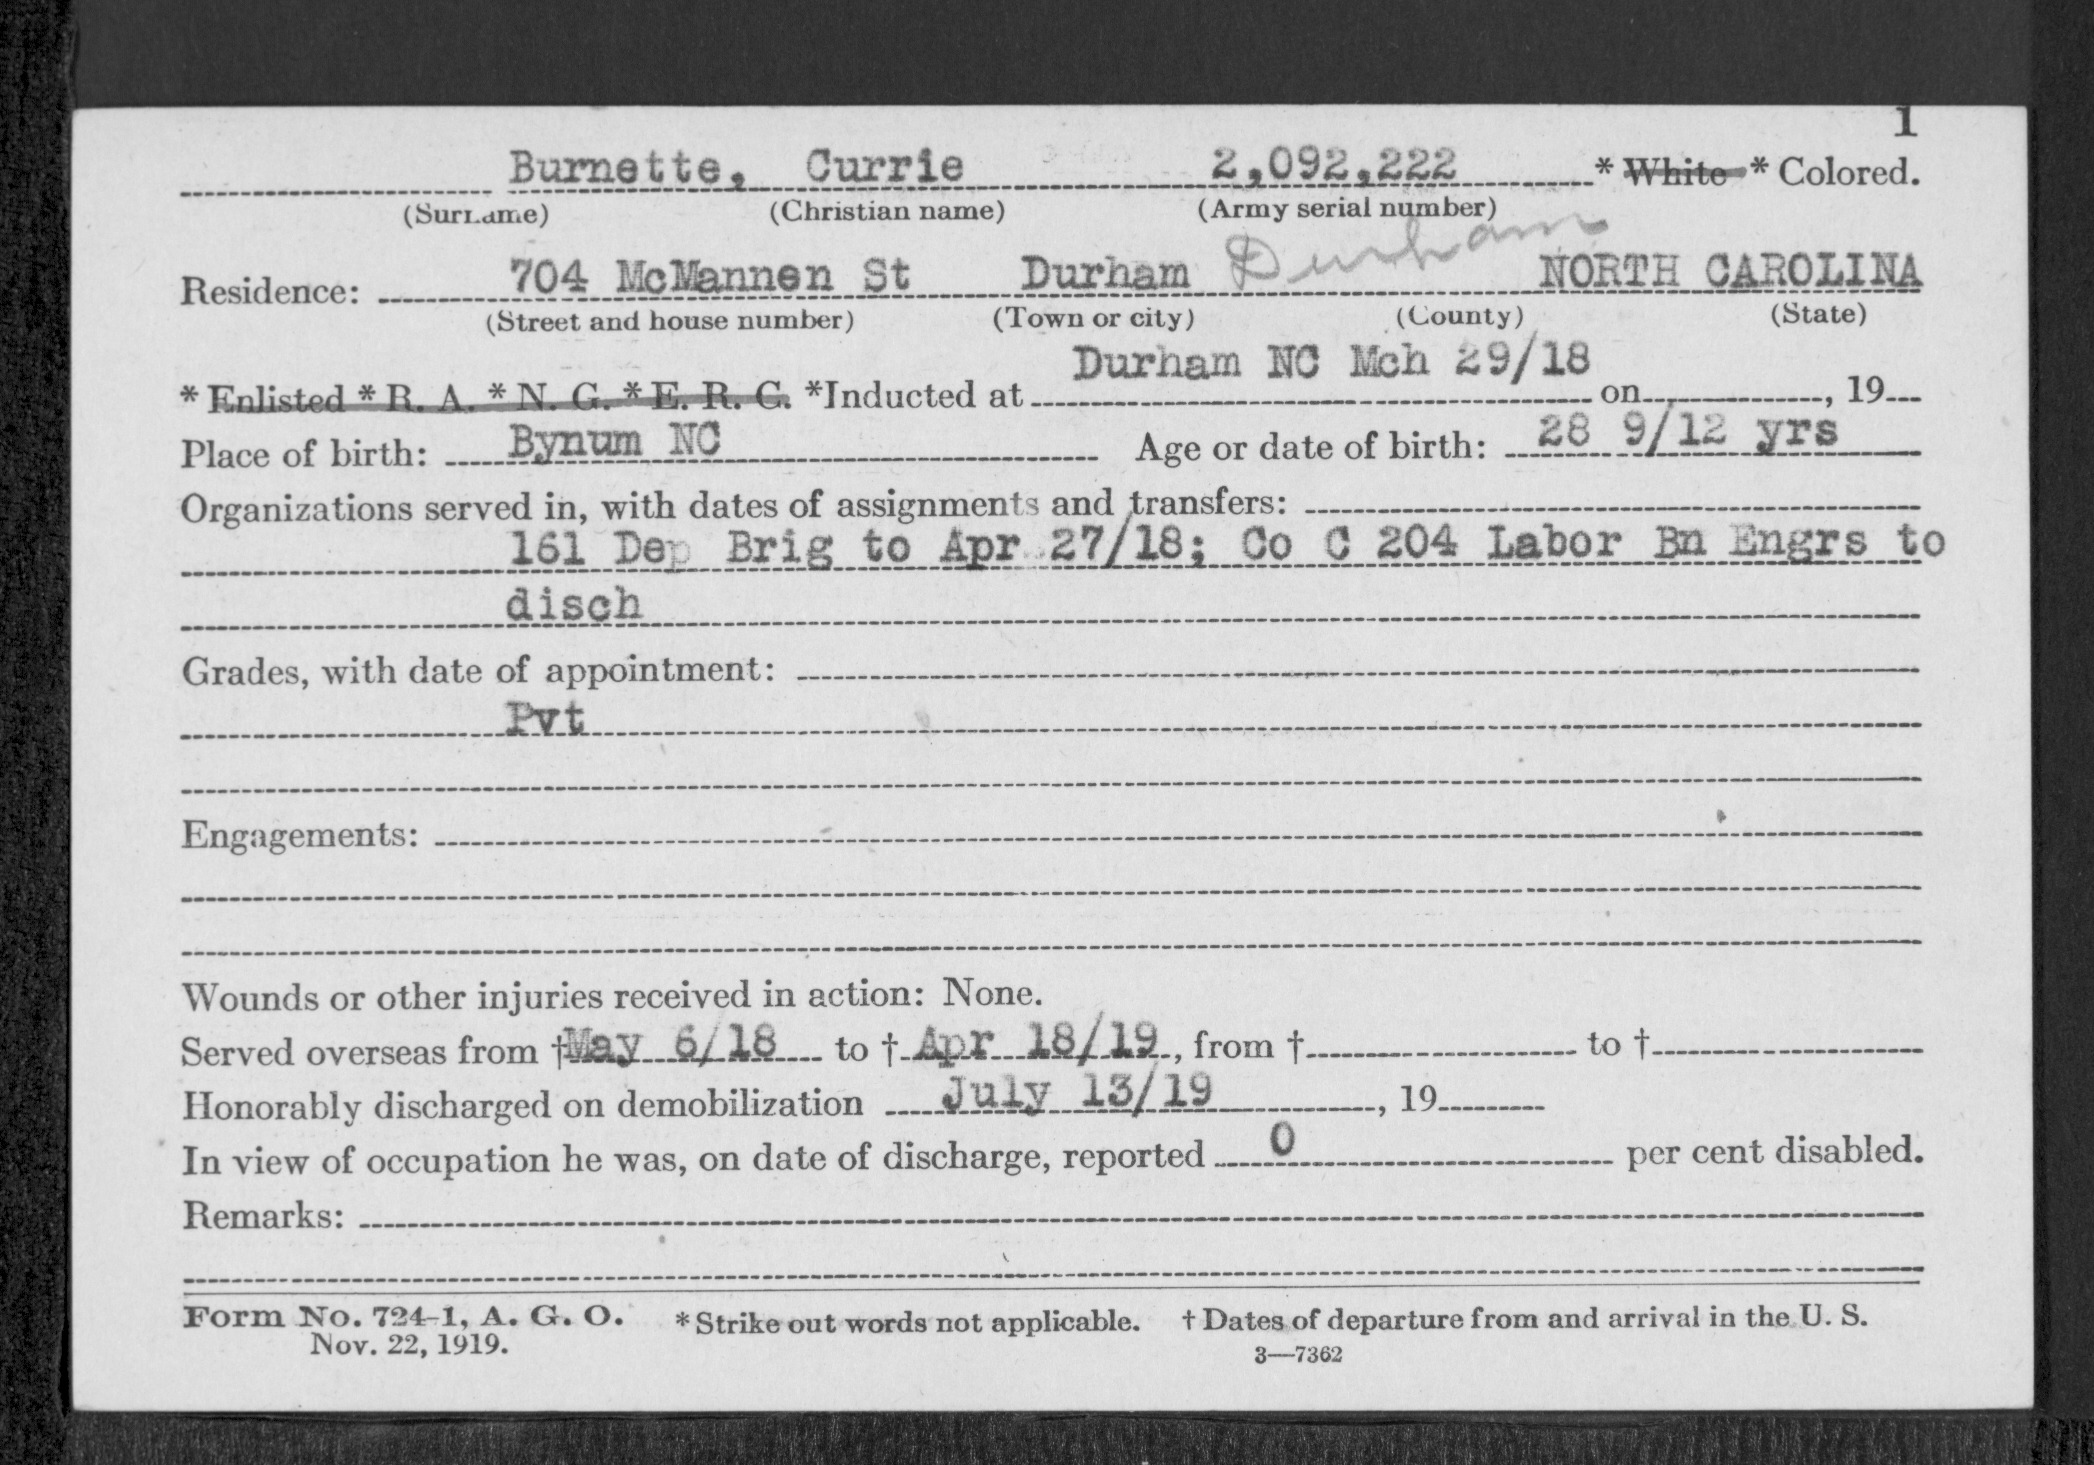 1
Burnette, Currie 2,092,222 * White * Colored.
(Surname) (Christian name) (Army serial number)
Residence: 704 McMannen St Durham Durham NORTH CAROLINA
(Street and house number) (Town or city) (County) (State)
Durham NC Mch 29/18
* Enlisted * R. A. * N. G. * E. R. C. *Inducted at on , 19
Place of birth: Bynum NC Age or date of birth: 28 9/12 yrs
Organizations served in, with dates of assignments and transfers:
161 Dep Brig to Apr 27/18; Co C 204 Labor Bn Engrs to
disch
Grades, with date of appointment:
Pvt
Engagements:
Wounds or other injuries received in action: None.
Served overseas from † May 6/18 to † Apr 18/19, from † to †
Honorably discharged on demobilization July 13/19, 19
In view of occupation he was, on date of discharge, reported 0 per cent disabled.
Remarks:
Form No. 724-1, A. G. O. * Strike out words not applicable. † Dates of departure from and arrival in the U. S.
Nov. 22, 1919. 3—7362